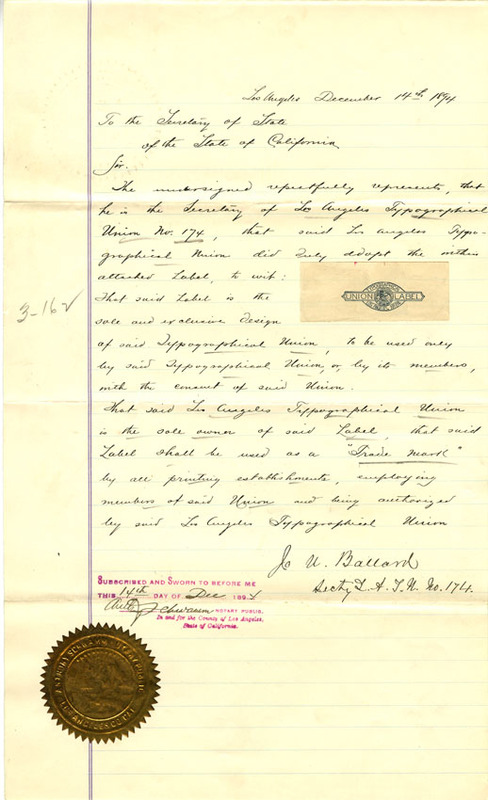 Los Angeles December 14th 1894
To the Secretary of State
of the State of California
Sir
The undersigned repectfully represents, that
he is the Secretary of Los Angeles Typographical
Union No. 174, that said Los Angeles Typo-
graphical Union did duly adopt the within
attached Label, to wit:
UNION LABEL
That said Label is the
sole and exclusive design
of said Typographical Union, to be used only
by said Typographical Union, or by its members,
with the consent of said Union.
3-162
That said Los Angeles Typographical Union
is the sole owner of said Label, that said
Label shall be used as a "Trade Mark"
by all printing establishments, employing
members of said Union and being authorized
by said Los Angeles Typographical Union
Jo U. Ballard
Secty L. A. T. U. No. 174.
SUBSCRIBED AND SWORN TO BEFORE ME
THIS 14th DAY OF Dec 1894
NOTARY PUBLIC,
In and for the County of Los Angeles,
State of California.